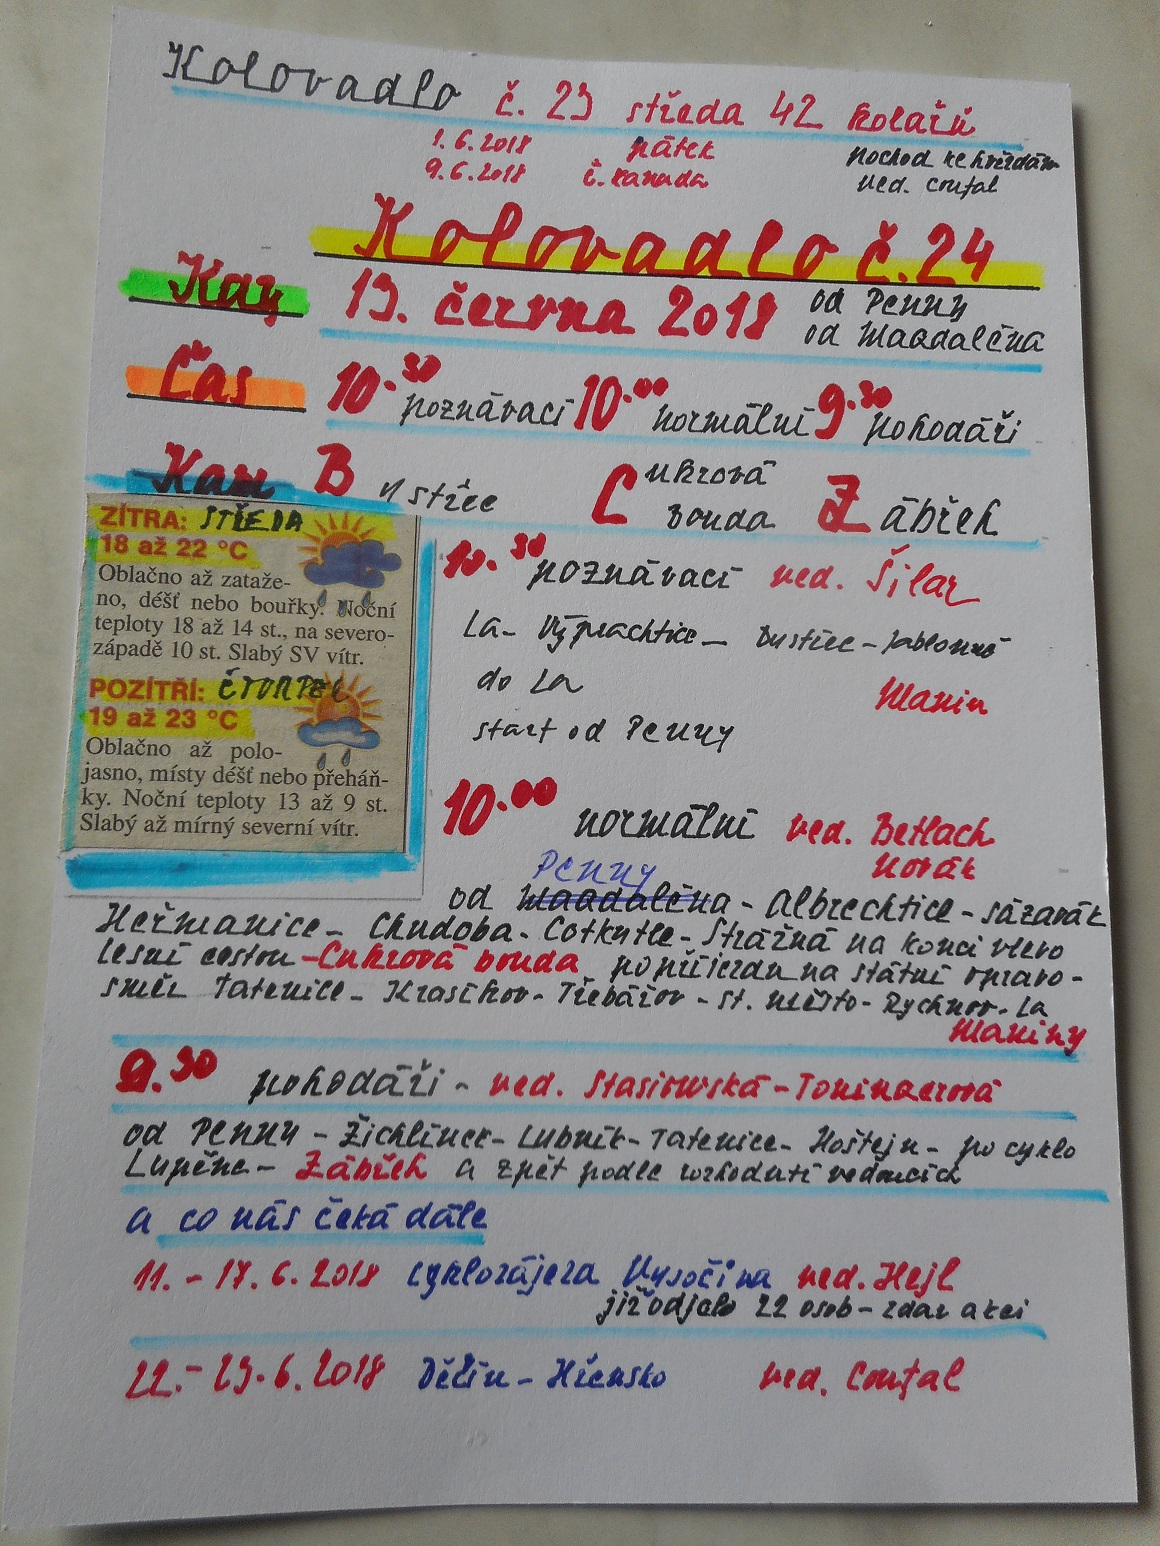 Kolovadlo č. 23 středa 42 kolařů
1.6.2018 pátek pochod ke hvězdám
9.6.2018 č. kanada ved. Coufal
Kolovadlo č. 24
13. června 2018 od Penny
od Magdaléna
Čas 10.30 poznávací 10.00 normální 9.30 pohodáři
Kam B ystřec Cukrová bouda Zábřeh
ZÍTRA: STŘEDA
18 až 22 °C
Oblačno až zataže-
no, déšť nebo bouřky. Noční
teploty 18 až 14 st., na severo-
západě 10 st. Slabý SV vítr.
POZÍTŘÍ: ČTVRTEK
19 až 23 °C
Oblačno až polo-
jasno, místy déšť nebo přeháň-
ky. Noční teploty 13 až 9 st.
Slabý až mírný severní vítr.
10.30 poznávací ved. Šilar
La- Výprachtice- Bystřec-Jablonné
do La Manin
start od Penny
10.00 normální ved. Betlach
Novák
Penny
od Magdaléna - Albrechtice - Sázavák
Heřmanice - Chudoba - Cotkytle - Strážná na konci vlevo
lesní cestou - Cukrová bouda po příjezdu na státní vpravo -
směr Tatenice - Krasíkov - Třebářov - st. město - Rychnov - La
Maniny
9.30 pohodáři - ved. Stasiowská -
od Penny - Žichlínek - Lubník - Tatenice - Hoštejn - po cyklo
Lupěné - Zábřeh a zpět podle rozhodnutí vedoucích
a co nás čeká dále
11. - 17.6.2018 cyklozájezd Vysočina ved. Hejl
již odjelo 22 osob - zdar akci
22. - 23.6.2018 Děčín - Hřensko ved. Coufal